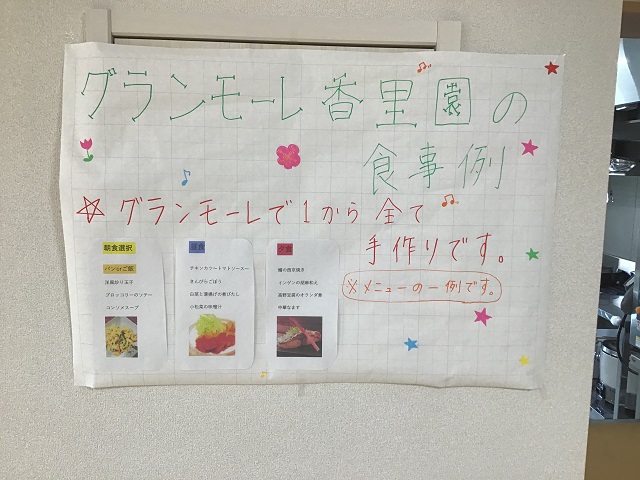 グランモーレ香里園の
食事例
☆グランモーレで1から全て
手作りです。
※メニューの一例です。
朝食選択
パンorご飯
洋風炒り玉子
ブロッコリーのソテー
コンソメスープ
昼食
チキンカツトマトソース
きんぴらごぼう
白菜と薄揚げの煮びたし
小松菜の味噌汁
夕食
鰆の西京焼き
インゲンの胡麻和え
高野豆腐のオランダ煮
中華なます